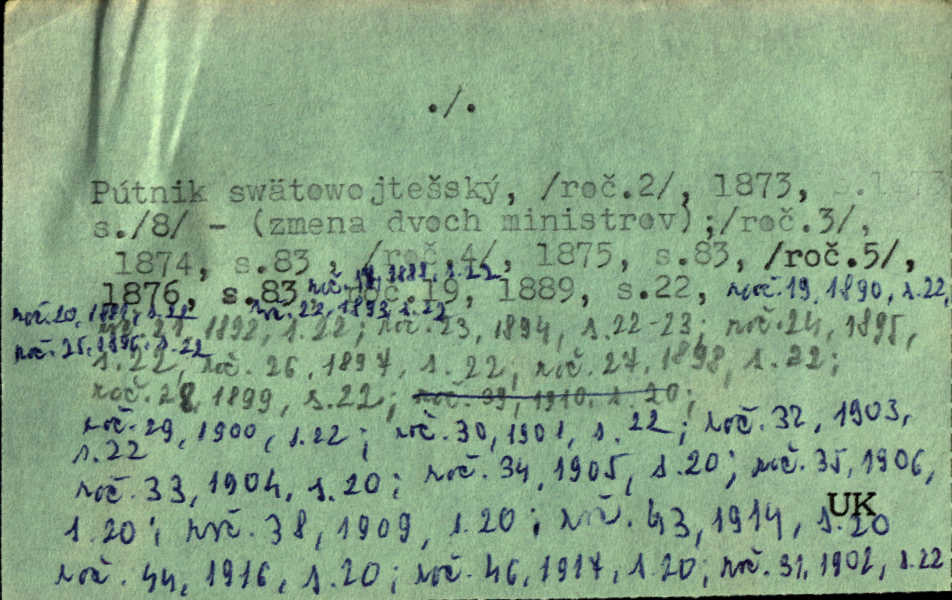 ./.
Pútnik swätowojtešský, /roč.2/, 1873,
s./8/ - (zmena dvoch ministrov);/roč.3/,
1874, s.83, /roč.4/, 1875, s.83, /roč.5/,
roč. s.22
1876, s.83 roč.19, 1889, s.22, roč.19, 1890, s.22
roč.20, s.22 roč.22, 1893, s.22
roč.21, 1892, s.22; roč.23, 1894, s.22-23; roč.24, 1895,
roč.25, 1896, s.22
s.22, roč.26, 1897, s.22; roč.27, 1898, s.22;
roč.28, 1899, s.22; roč.39, 1910, s.20;
roč.29, 1900, s.22; roč.30, 1901, s.22; roč.32, 1903,
s.22
roč.33, 1904, s.20; roč.34, 1905, s.20; roč.35, 1906,
UK
s.20; roč.38, 1909, s.20; roč.43, 1914, s.20
roč.44, 1916, s.20; roč.46, 1917, s.20; roč.31, 1902, s.22